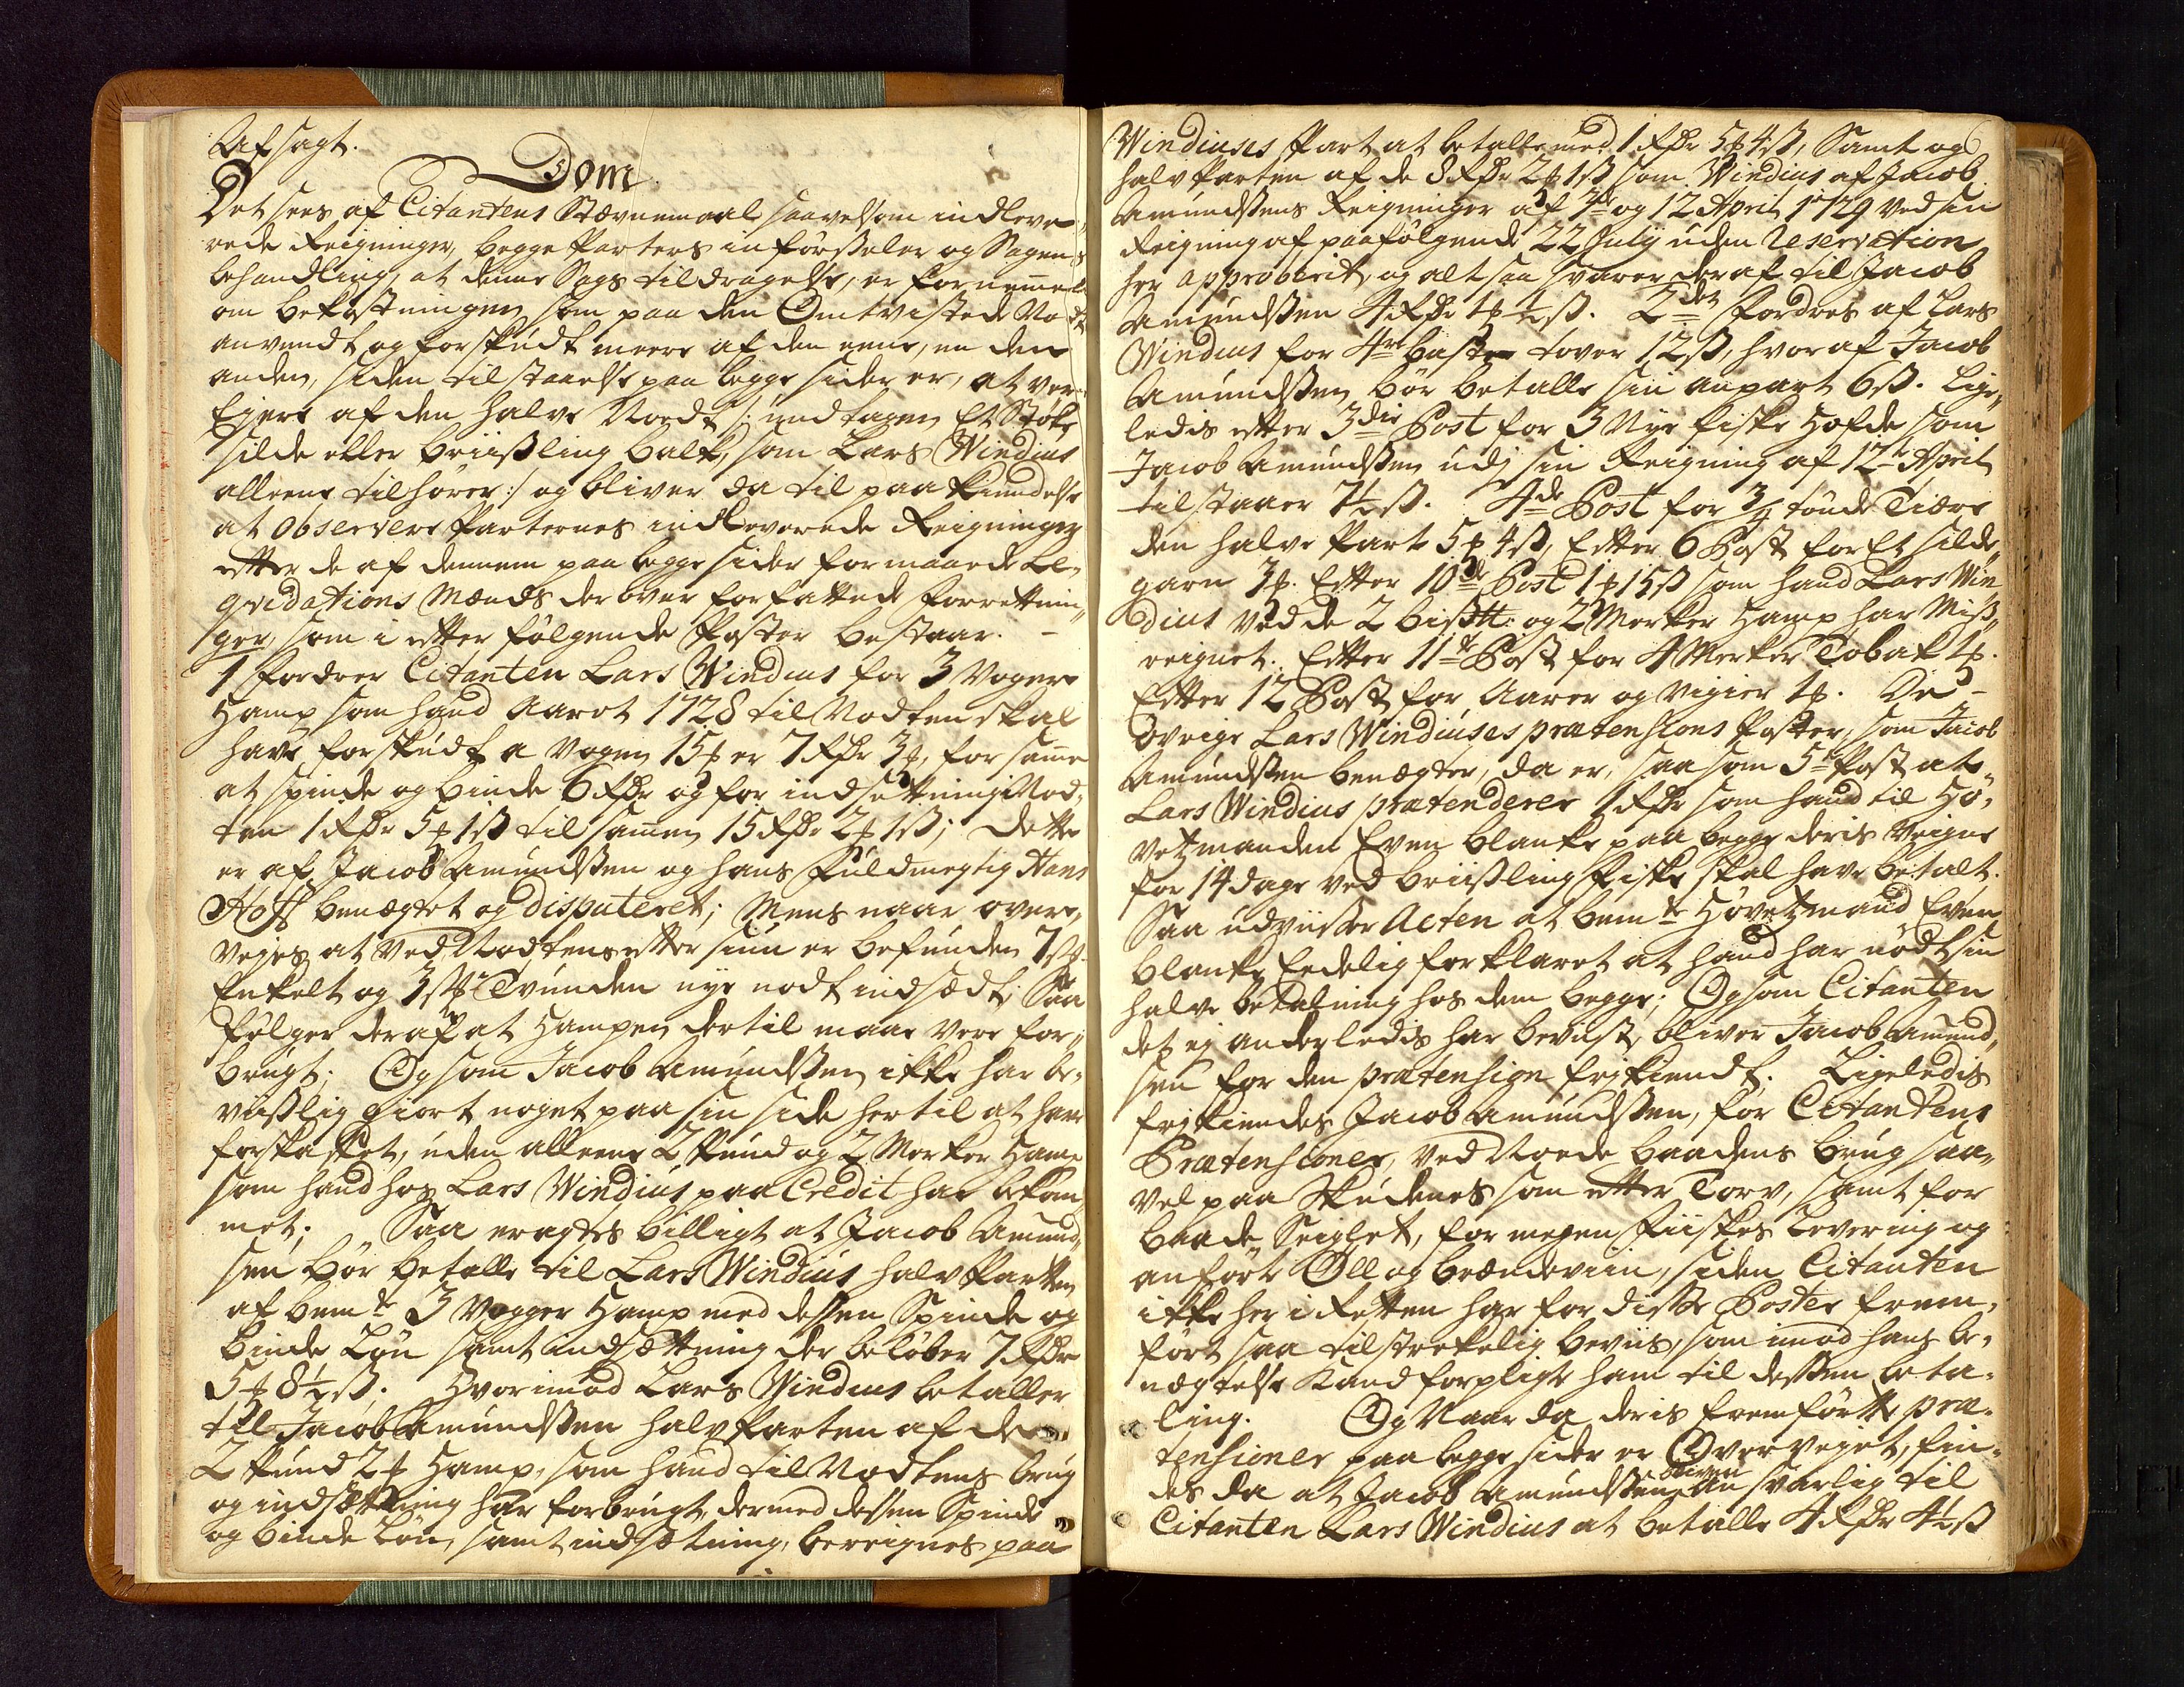 Afsagt.
Dom
Det sees af Citantens Stævnemaal saavelsom indleve¬
rede Reigninger, begge Parters införsseler og Sagens
behandling, at denne Sags tildragelse, er fornemel
om bekostningen som paa den Omtvistede Nodt
anvendt og forskudt meere af den eene, en den
anden, siden tilstaaelse paa begge sider er, at vere
Eiere af den halve Noedt /: undtagen Et Støke
silde eller briisling balk, som Lars Windius
alleene tilhører :/ og bliver da til paakiendelse
at observere Parternes indleverede Reigninger
etter de af dennem paa begge sider formaaede Le¬
qvidations Mænds derover forfattede forrettnin¬
ger, som i etter følgende Poster bestaar. -
1 fordrer Citanten Lars Windius for 3 Vogere
Hamp som hand Aaret 1728 til Nodten skal
have forskudt a Vogen 15 ₰ er 7 Rdr 3 ₰, for samme
at spinde og binde 6 Rdr og for indsettning i Nod¬
ten 1 Rdr 5 ₰ 1 ß til samen 15 Rdr 2 ₰ 1 ß; dette
er af Jacob Amundssen og hans Fuldmegtig Hans
Hoff benegtet og disputeret; Mens naar over¬
vejes at ved Nodtens ettersiun er befunden 7
Enkelt og 3 Tvunden nye nodt indsædt; Saa
følger deraf at Hampen dertil maae vere for¬
brugt; Og som Jacob Amundssen ikke har be¬
viislig giort noget paa sin side hertil at have
forskaffet, uden alleene 2 Pund og 2 Merker Hamp
som hand hos Lars Windius paa Credit har bekom¬
met; Saa eragtes billigt at Jacob Amund¬
sen bør betalle til Lars Windius halv Parten
af bemte 3 Vogger Hamp med dessen Spinde og
binde Løn samt indsættning der beløber 7 Rdr
5 ₰ 8½ ß. Hvorimod Lars Windius betaller
til Jacob Amundssen halvparten af de
2 Pund 2 ₰ Hamp, som hand til Nodtens brug
og indsættning har forbrugt, dermed dessen Spinde
og binde Løn, samt indsætning, bereignes paa
Windiuses Part at betalle med 1 Rdr 5 ₰ 4 ß, Samt og
halv Parten af de 8 Rdr 2 ₰ 1 ß som Windius af Jacob
Amundssens Reigninger af 7de og 12 April 1729 ved sin
Reigning af paafølgende 22 July uden Reservation
her approberit, og alt saa svarer deraf til Jacob
Amundssen 4 Rdr 1 ₰ ½ ß. 2den fordres af Lars
Windius for 4re baster tover 12 ß, hvoraf Jacob
Amundssen bør betalle sin anpart 6 ß. Lige¬
ledis etter 3die Post for 3 Nye fiske Hofde som
Jacob Amundssen udj sin Reigning af 12te April
tilstaaer 7½ ß. 4de Post for ¾ tønde Tiære
den halve Part 5 ₰ 4 ß, Etter 6 Post for Et silde¬
garn 3 ₰. Etter 10de Post 1 ₰ 15 ß som hand Lars Win
dius ved de 2 bis℔ og 2 Merker Hamp har Miss¬
reignet. Etter 11te Post for 4 Merker Tobak 1 ₰.
Etter 12 Post for Aarer og Vigier 1 ₰. De -
øvrige Lars Windiuses prætensions Poster, som Jacob
Amundssen benægter, da er, saasom 5te Post at
Lars Windius prætenderer 1 Rdr som hand til Hø¬
vetzmanden Even blanke paa begge deris Veigne
for 14 dage ved briisling fiske skal have betalt.
Saa udviisser Acten at bemte Høvetzmand Even
blanke Eedelig forklaret at hand har nødt sin
halve betalning hos dem begge; Og som Citanten
det ej anderledis har beviist, bliver Jacob Amund¬
sen for den prætension frikiendt. Ligeledis
frikiendes Jacob Amundssen, for Citantens
Prætensioner, ved Noede baadens brug saa¬
vel paa Skudenes som etter Torv, samt for
baade Seiglet, for megen Fiiskes levering og
anført Øll og brændeviin, siden Citanten
ikke her i Retten har for disse Poster frem¬
ført saa tilstrekelig beviis, som imod hans be¬
nægtelse kand forpligte ham til dessen beta¬
ling. Og Naar da deris fremførte præ¬
tensioner paa begge sider er Overveiet, fin¬
des da at Jacob Amundssen bliver Ansvarlig til
Citanten Lars Windius at betalle 4 Rdr 4½ ß